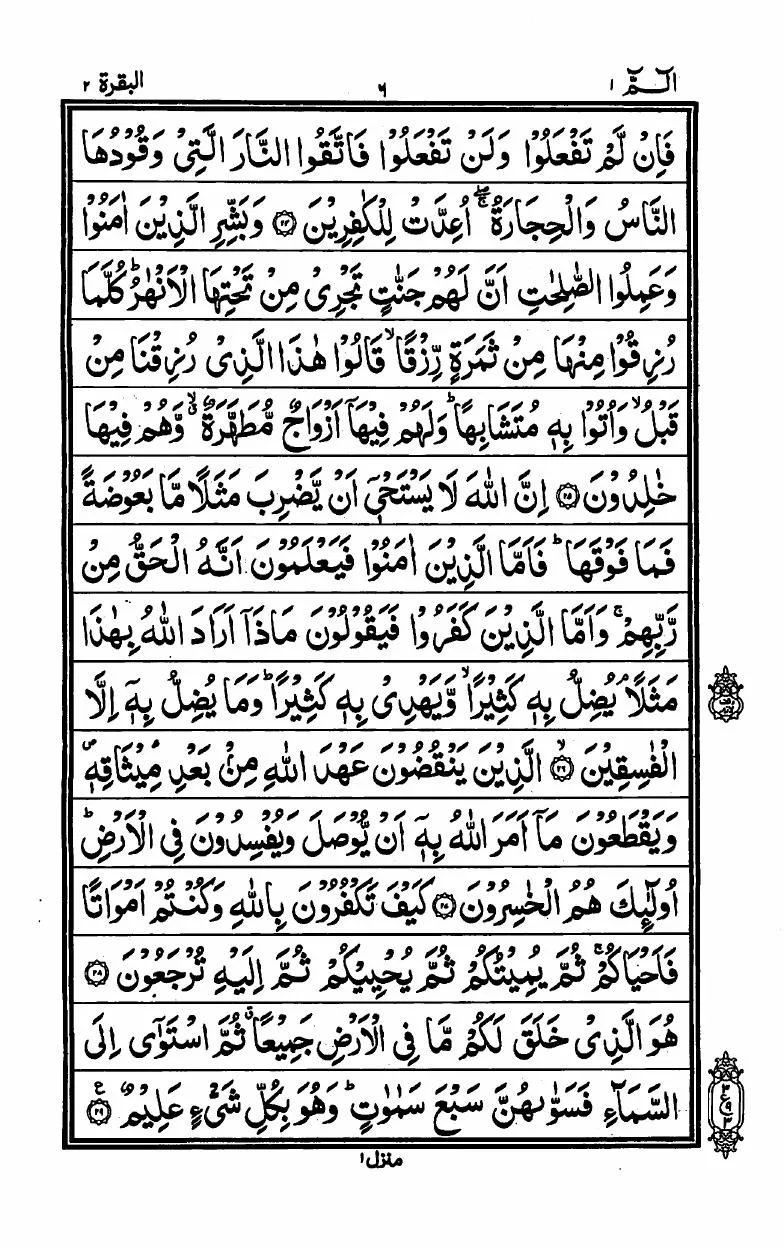 الٓـمّٓ ١
٦
البقرة ٢
فَاِنْ لَّمْ تَفْعَلُوْا وَلَنْ تَفْعَلُوْا فَاتَّقُوا النَّارَ الَّتِىْ وَقُوْدُهَا
النَّاسُ وَالْحِجَارَةُ ۖۚ اُعِدَّتْ لِلْكٰفِرِيْنَ ﴿٢٤﴾ وَبَشِّرِ الَّذِيْنَ اٰمَنُوْا
وَعَمِلُوا الصّٰلِحٰتِ اَنَّ لَهُمْ جَنّٰتٍ تَجْرِىْ مِنْ تَحْتِهَا الْاَنْهٰرُ ؕ كُلَّمَا
رُزِقُوْا مِنْهَا مِنْ ثَمَرَةٍ رِّزْقًا ۙ قَالُوْا هٰذَا الَّذِىْ رُزِقْنَا مِنْ
قَبْلُ ۙ وَاُتُوْا بِهٖ مُتَشَابِهًا ؕ وَلَهُمْ فِيْهَآ اَزْوَاجٌ مُّطَهَّرَةٌ ۙ وَّهُمْ فِيْهَا
خٰلِدُوْنَ ﴿٢٥﴾ اِنَّ اللّٰهَ لَا يَسْتَحْىٖٓ اَنْ يَّضْرِبَ مَثَلًا مَّا بَعُوْضَةً
فَمَا فَوْقَهَا ؕ فَاَمَّا الَّذِيْنَ اٰمَنُوْا فَيَعْلَمُوْنَ اَنَّهُ الْحَقُّ مِنْ
رَّبِّهِمْ ۚ وَاَمَّا الَّذِيْنَ كَفَرُوْا فَيَقُوْلُوْنَ مَاذَآ اَرَادَ اللّٰهُ بِهٰذَا
مَثَلًا ۘ يُضِلُّ بِهٖ كَثِيْرًا ۙ وَّيَهْدِىْ بِهٖ كَثِيْرًا ؕ وَمَا يُضِلُّ بِهٖٓ اِلَّا
الْفٰسِقِيْنَ ۙ ﴿٢٦﴾ الَّذِيْنَ يَنْقُضُوْنَ عَهْدَ اللّٰهِ مِنْۢ بَعْدِ مِيْثَاقِهٖ ۪
وَيَقْطَعُوْنَ مَآ اَمَرَ اللّٰهُ بِهٖٓ اَنْ يُّوْصَلَ وَيُفْسِدُوْنَ فِى الْاَرْضِ ؕ
اُولٰٓئِكَ هُمُ الْخٰسِرُوْنَ ﴿٢٧﴾ كَيْفَ تَكْفُرُوْنَ بِاللّٰهِ وَكُنْتُمْ اَمْوَاتًا
فَاَحْيَاكُمْ ۚ ثُمَّ يُمِيْتُكُمْ ثُمَّ يُحْيِيْكُمْ ثُمَّ اِلَيْهِ تُرْجَعُوْنَ ﴿٢٨﴾
هُوَ الَّذِىْ خَلَقَ لَكُمْ مَّا فِى الْاَرْضِ جَمِيْعًا ۗ ثُمَّ اسْتَوٰٓى اِلَى
السَّمَآءِ فَسَوّٰىهُنَّ سَبْعَ سَمٰوٰتٍ ؕ وَهُوَ بِكُلِّ شَىْءٍ عَلِيْمٌ ﴿٢٩﴾ ع
٣
ع ٩
٣
منزل ١